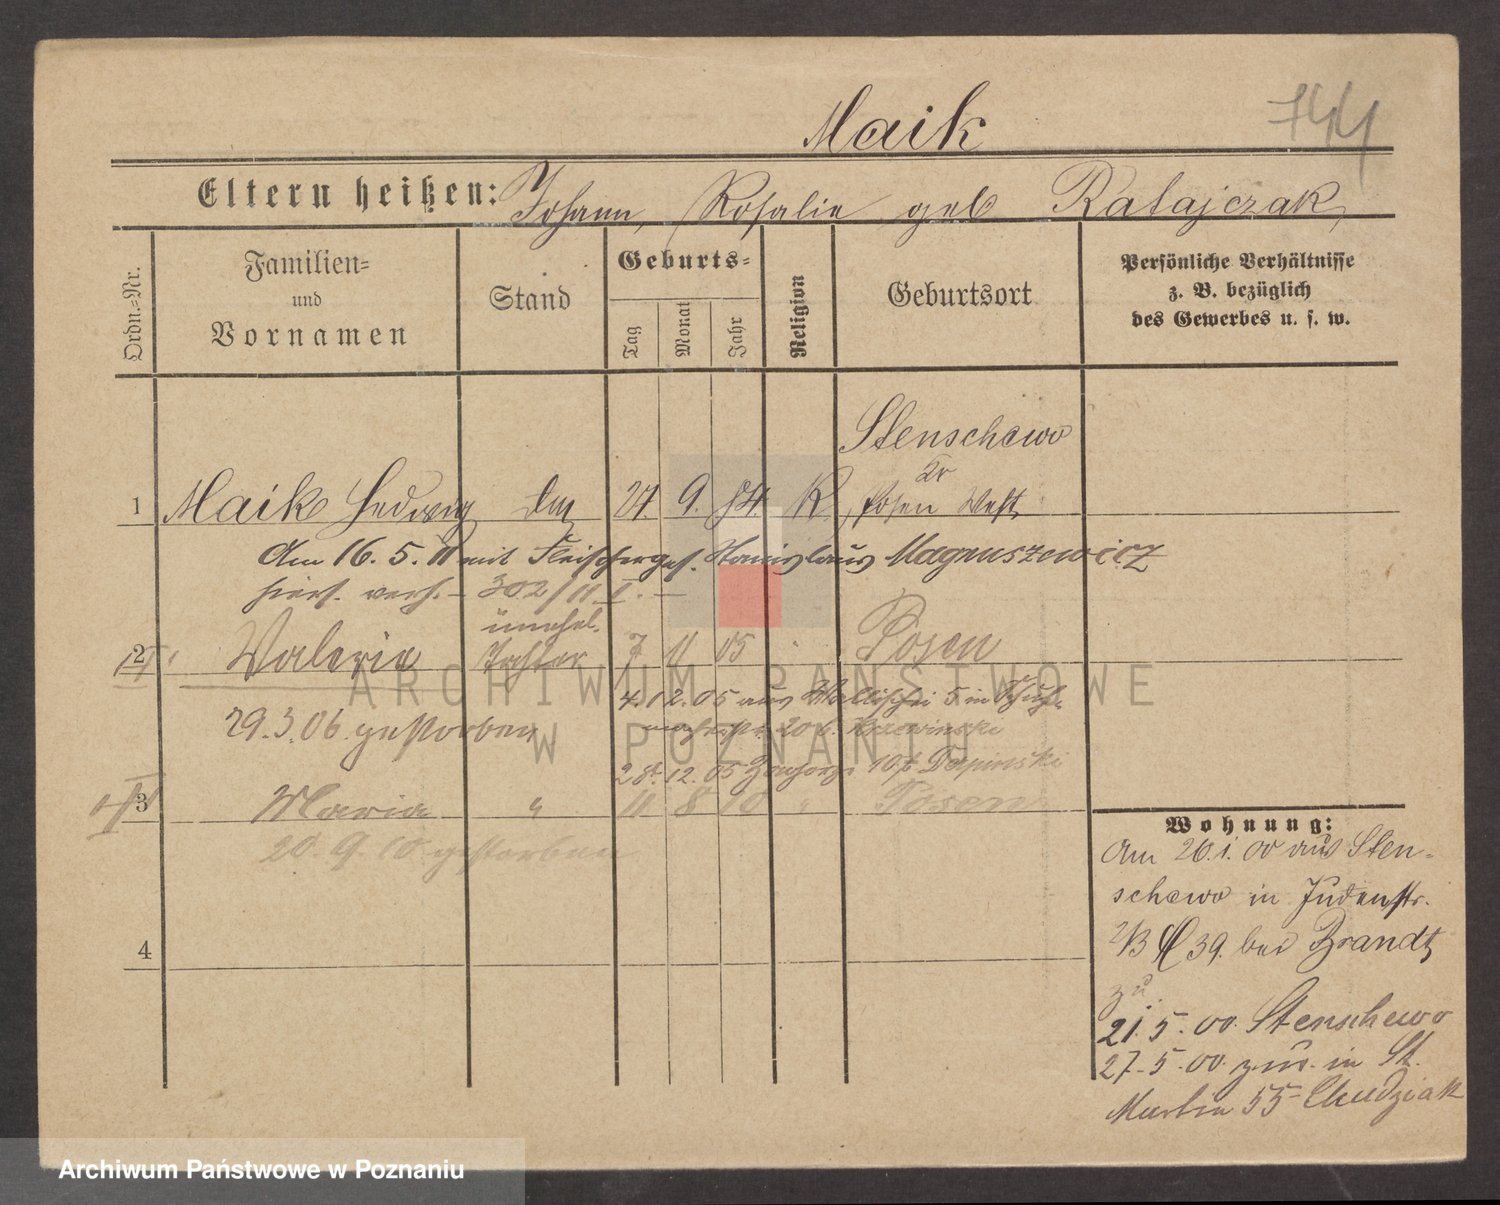 Maik
744
Eltern heißen: Johann, Rosalie geb Ratajczak
Ordn.-Nr.
Familien-
und
Vornamen
Stand
Geburts-
Tag
Monat
Jahr
Religion
Geburtsort
Persönliche Verhältnisse
z. B. bezüglich
des Gewerbes u. s. w.
Stenschewo
Kr
1 Maik Hedwig 9. 84. K. Posen West
Am 16. 5. 11 mit Fleischerges. Stanislaus Magnuszewicz
hiers. verh. – 302/11 II. –
unehel.
2 Valerie Tochter 7 11 05 Posen
4.12.05 aus Wallischei 5 in
29.3.06 gestorben
28.12.05
3 Maria " 11 8 10 " Posen
20. 9. 10 gestorben
4
Wohnung:
Am 26.1.00 aus Sten-
schewo in Judenstr.
39. bei Brandt
zu
21. 5. 00. Stenschewo
27. 5. 00. zur. in St.
Martin 55 Chudziak
ARCHIWUM PAŃSTWOWE
W POZNANIU
Archiwum Państwowe w Poznaniu